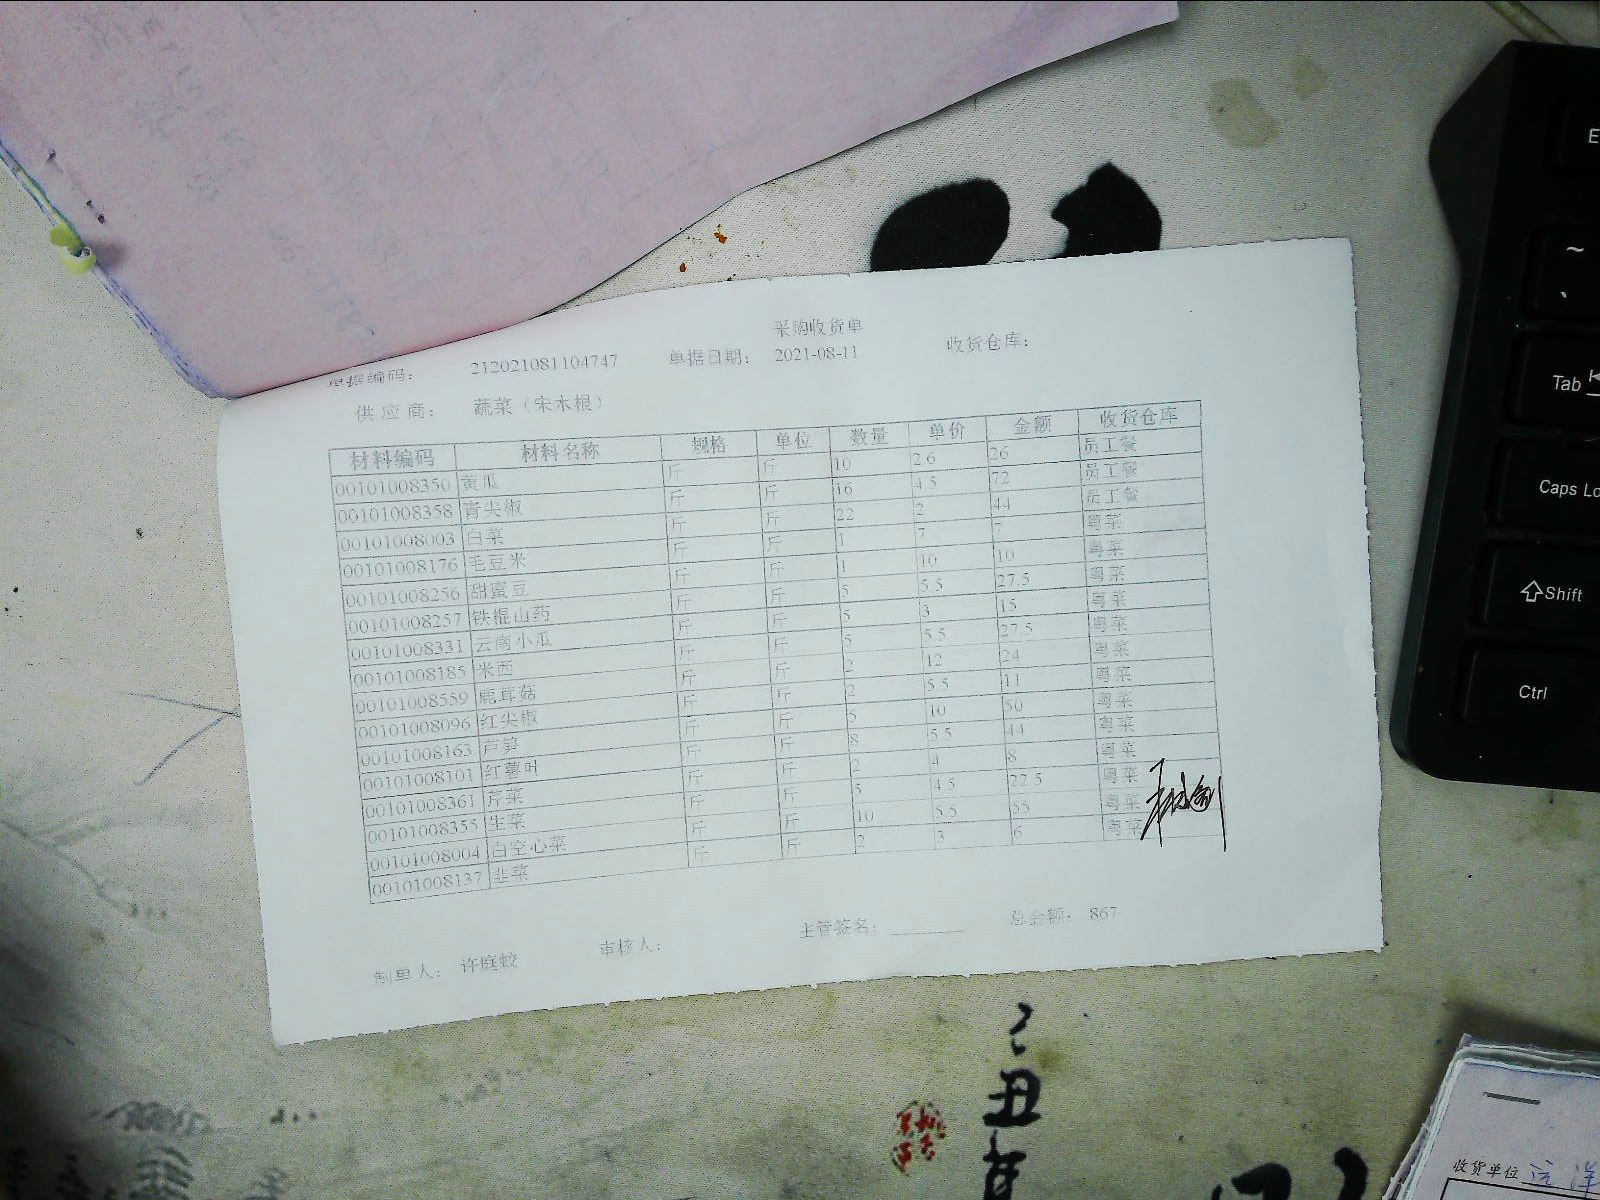 采购收货单
单据编码： 212021081104747 单据日期： 2021-08-11 收货仓库：
供应商： 蔬菜（宋木根）
材料编码 材料名称 规格 单位 数量 单价 金额 收货仓库
00101008350 黄瓜 斤 斤 10 2.6 26 员工餐
00101008358 青尖椒 斤 斤 16 4.5 72 员工餐
00101008003 白菜 斤 斤 22 2 44 员工餐
00101008176 毛豆米 斤 斤 1 7 7 粤菜
00101008256 甜蜜豆 斤 斤 1 10 10 粤菜
00101008257 铁棍山药 斤 斤 5 5.5 27.5 粤菜
00101008331 云南小瓜 斤 斤 5 3 15 粤菜
00101008185 米西 斤 斤 5 5.5 27.5 粤菜
00101008559 鹿茸菇 斤 斤 2 12 24 粤菜
00101008096 红尖椒 斤 斤 2 5.5 11 粤菜
00101008163 芦笋 斤 斤 5 10 50 粤菜
00101008101 红薯叶 斤 斤 8 5.5 44 粤菜
00101008361 芹菜 斤 斤 2 4 8 粤菜
00101008355 生菜 斤 斤 5 4.5 22.5 粤菜
00101008004 白空心菜 斤 斤 10 5.5 55 粤菜
00101008137 韭菜 斤 斤 2 3 6 粤菜
制单人： 许庭蛟 审核人： 主管签名： 总金额： 867
Tab
Caps Lo
Shift
Ctrl
丑年
收货单位